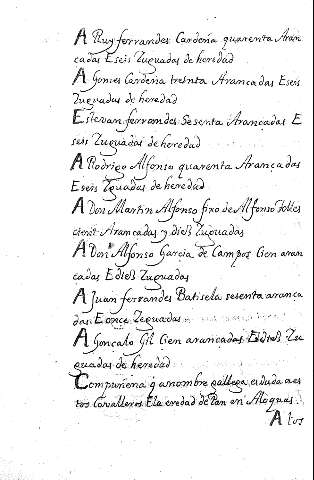 A Ruy ferrandes Cardeña quarenta Aran
cadas E seis Zuguadas de heredad
A Gomes Cardeña treinta Arancadas E seis
Zuguadas de heredad
Estevan ferrandes Sesenta Arancadas E
seis Zuguadas de heredad
A Rodrigo Alfonso quarenta Arancadas
E seis Zguadas de heredad
A Don Martin Alfonso fixo de Alfonso Telles
cient Arancadas y dies Zuguadas
A Don Alfonso Garcia de Campos Cien aran
cadas E dies Zuguadas
A Juan ferrandes Batisela sesenta aranca
das E once Zeguadas
A Goncalo Gil Cien arancadas E dies Zu
guadas de heredad
Compuñena q a nombre gallega es duda a es
tos Cavalleros E la eredad de Pan en Aloguas
A los